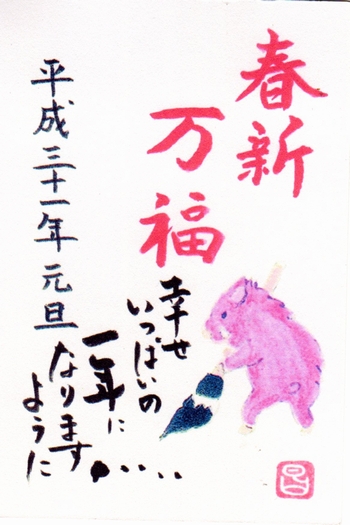 春新
万福
幸せ
いっぱいの
一年に
なります
ように
....
平成三十一年 元旦